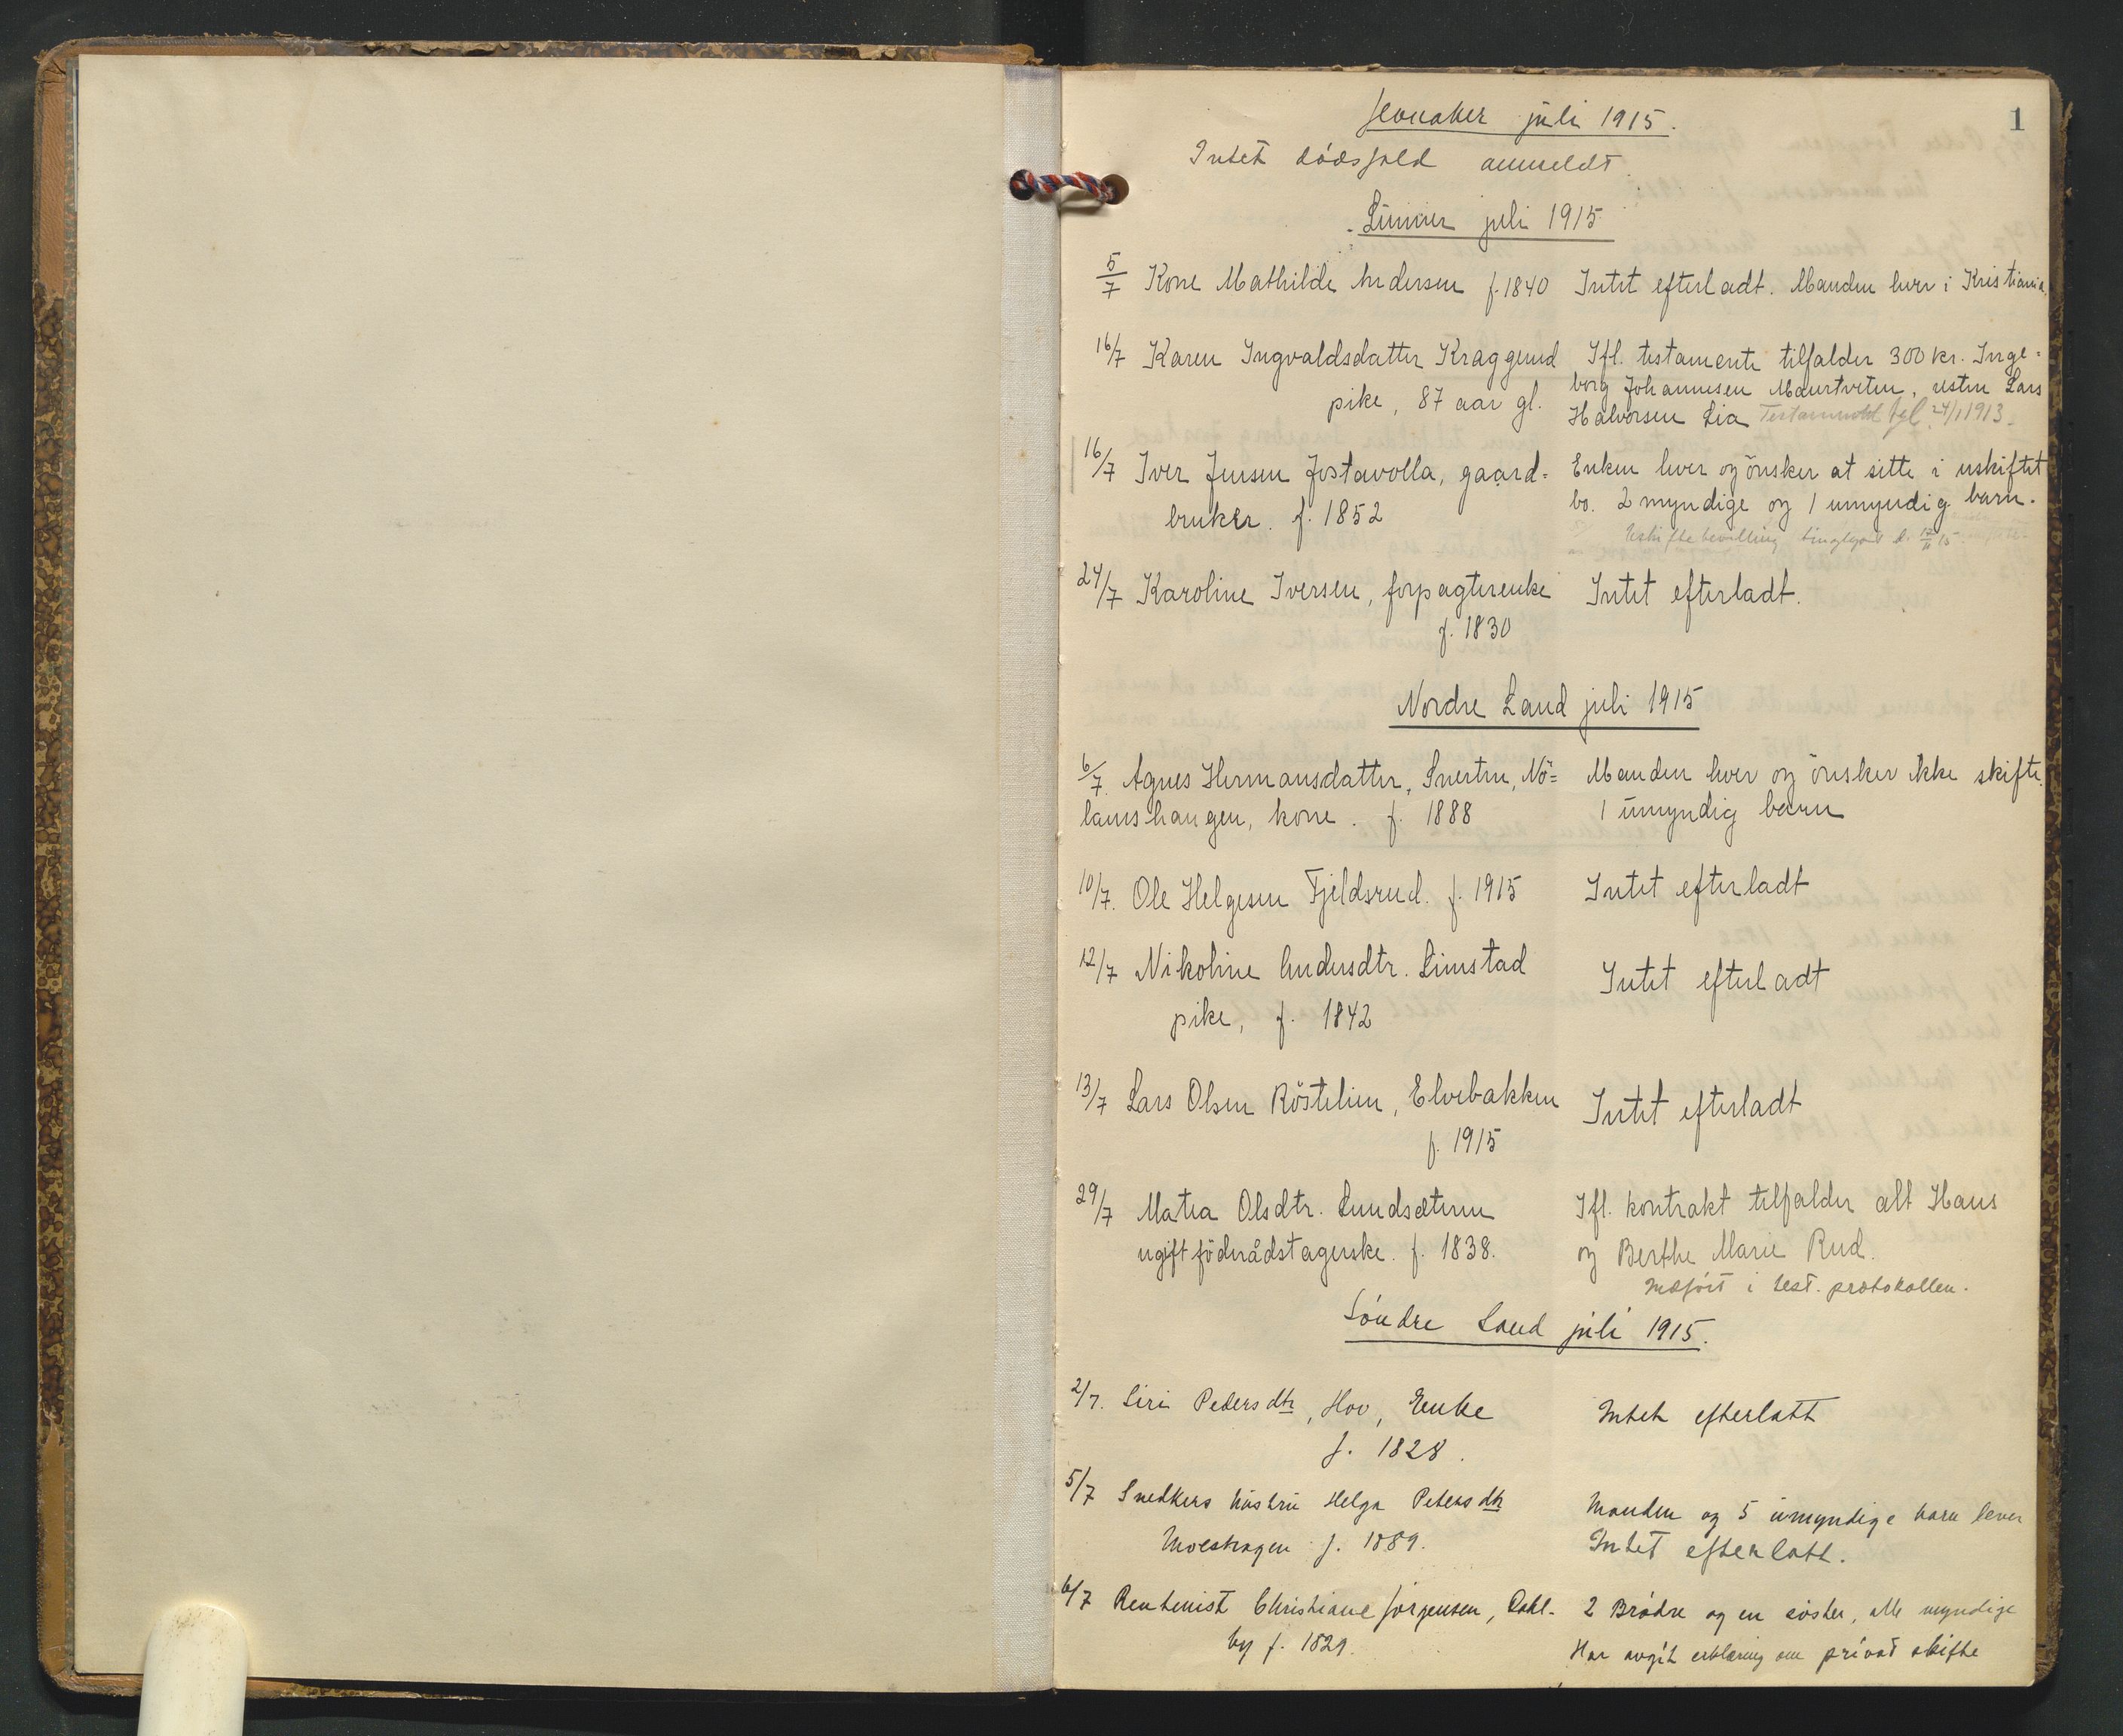 1
Jevnaker juli 1915.
Intet dödsfald anmeldt.
Lunner juli 1915
5/7 Kone Mathilde Andersen f. 1840 Intet efterladt. Manden lever i Kristiania.
16/7 Karen Ingvaldsdatter Kraggerud Ifl. testamente tilfalder 300 kr. Inge=
pike, 87 aar gl. borg Johannesen Maurtveten, resten Lars
Halvorsen Lia tgl. 24/1 1913.
16/7 Iver Jensen Jostavolla, gaard= Enken lever og önsker at sitte i uskiftet
bruker. f. 1852 bo. 2 myndige og 1 umyndig barn.
Uskiftebevilling tinglyst d. 17/11 15.
24/7 Karoline Iversen, forpagterenke Intet efterladt.
f. 1830
Nordre Land juli 1915
6/7. Agnes Hermansdatter, Snerten, Nö= Manden lever og önsker ikke skifte.
lanshaugen, kone. f. 1888 1 umyndig barn
10/7. Ole Helgesen Fjeldsrud. f. 1915 Intet efterladt
12/7 Nikoline Andersdtr. Limstad Intet efterladt
pike, f. 1842
13/7 Lars Olsen Röstelien, Elvebakken Intet efterladt
f. 1915
29/7 Matea Olsdtr. Lundsæteren Ifl. kontrakt tilfalder alt Hans
ugift föderådstagerske. f. 1838. og Berthe Marie Rud.
Indført i test. protokollen.
Söndre Land juli 1915.
2/7. Siri Pedersdtr, Hov, Enke Intet efterlatt
f. 1828.
5/7 Snedkers hustru Helga Petersdtr Manden og 5 umyndige barn lever
Moeshagen f. 1889. Intet efterlatt.
6/7 Rentenist Christiane Jörgensen, Dahl- 2 Brödre og en söster, alle myndige
by f. 1829. Har avgit erklæring om privat skifte